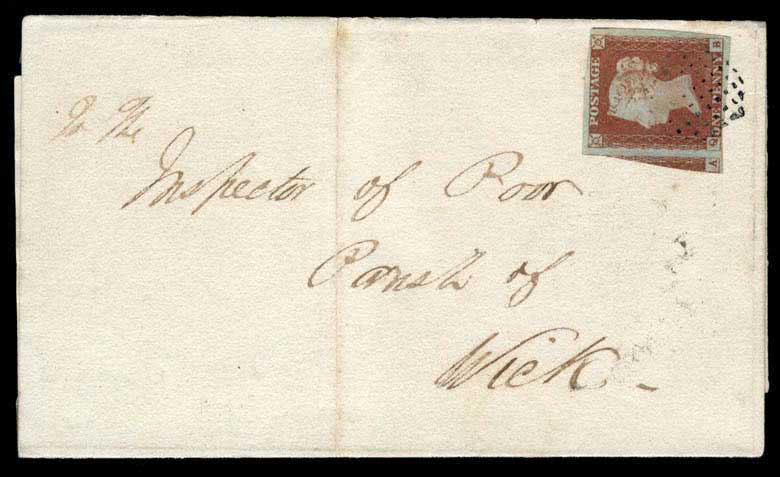 To The
Inspector of Poor
Parish of
Wick
POSTAGE
ONE PENNY
B
Q